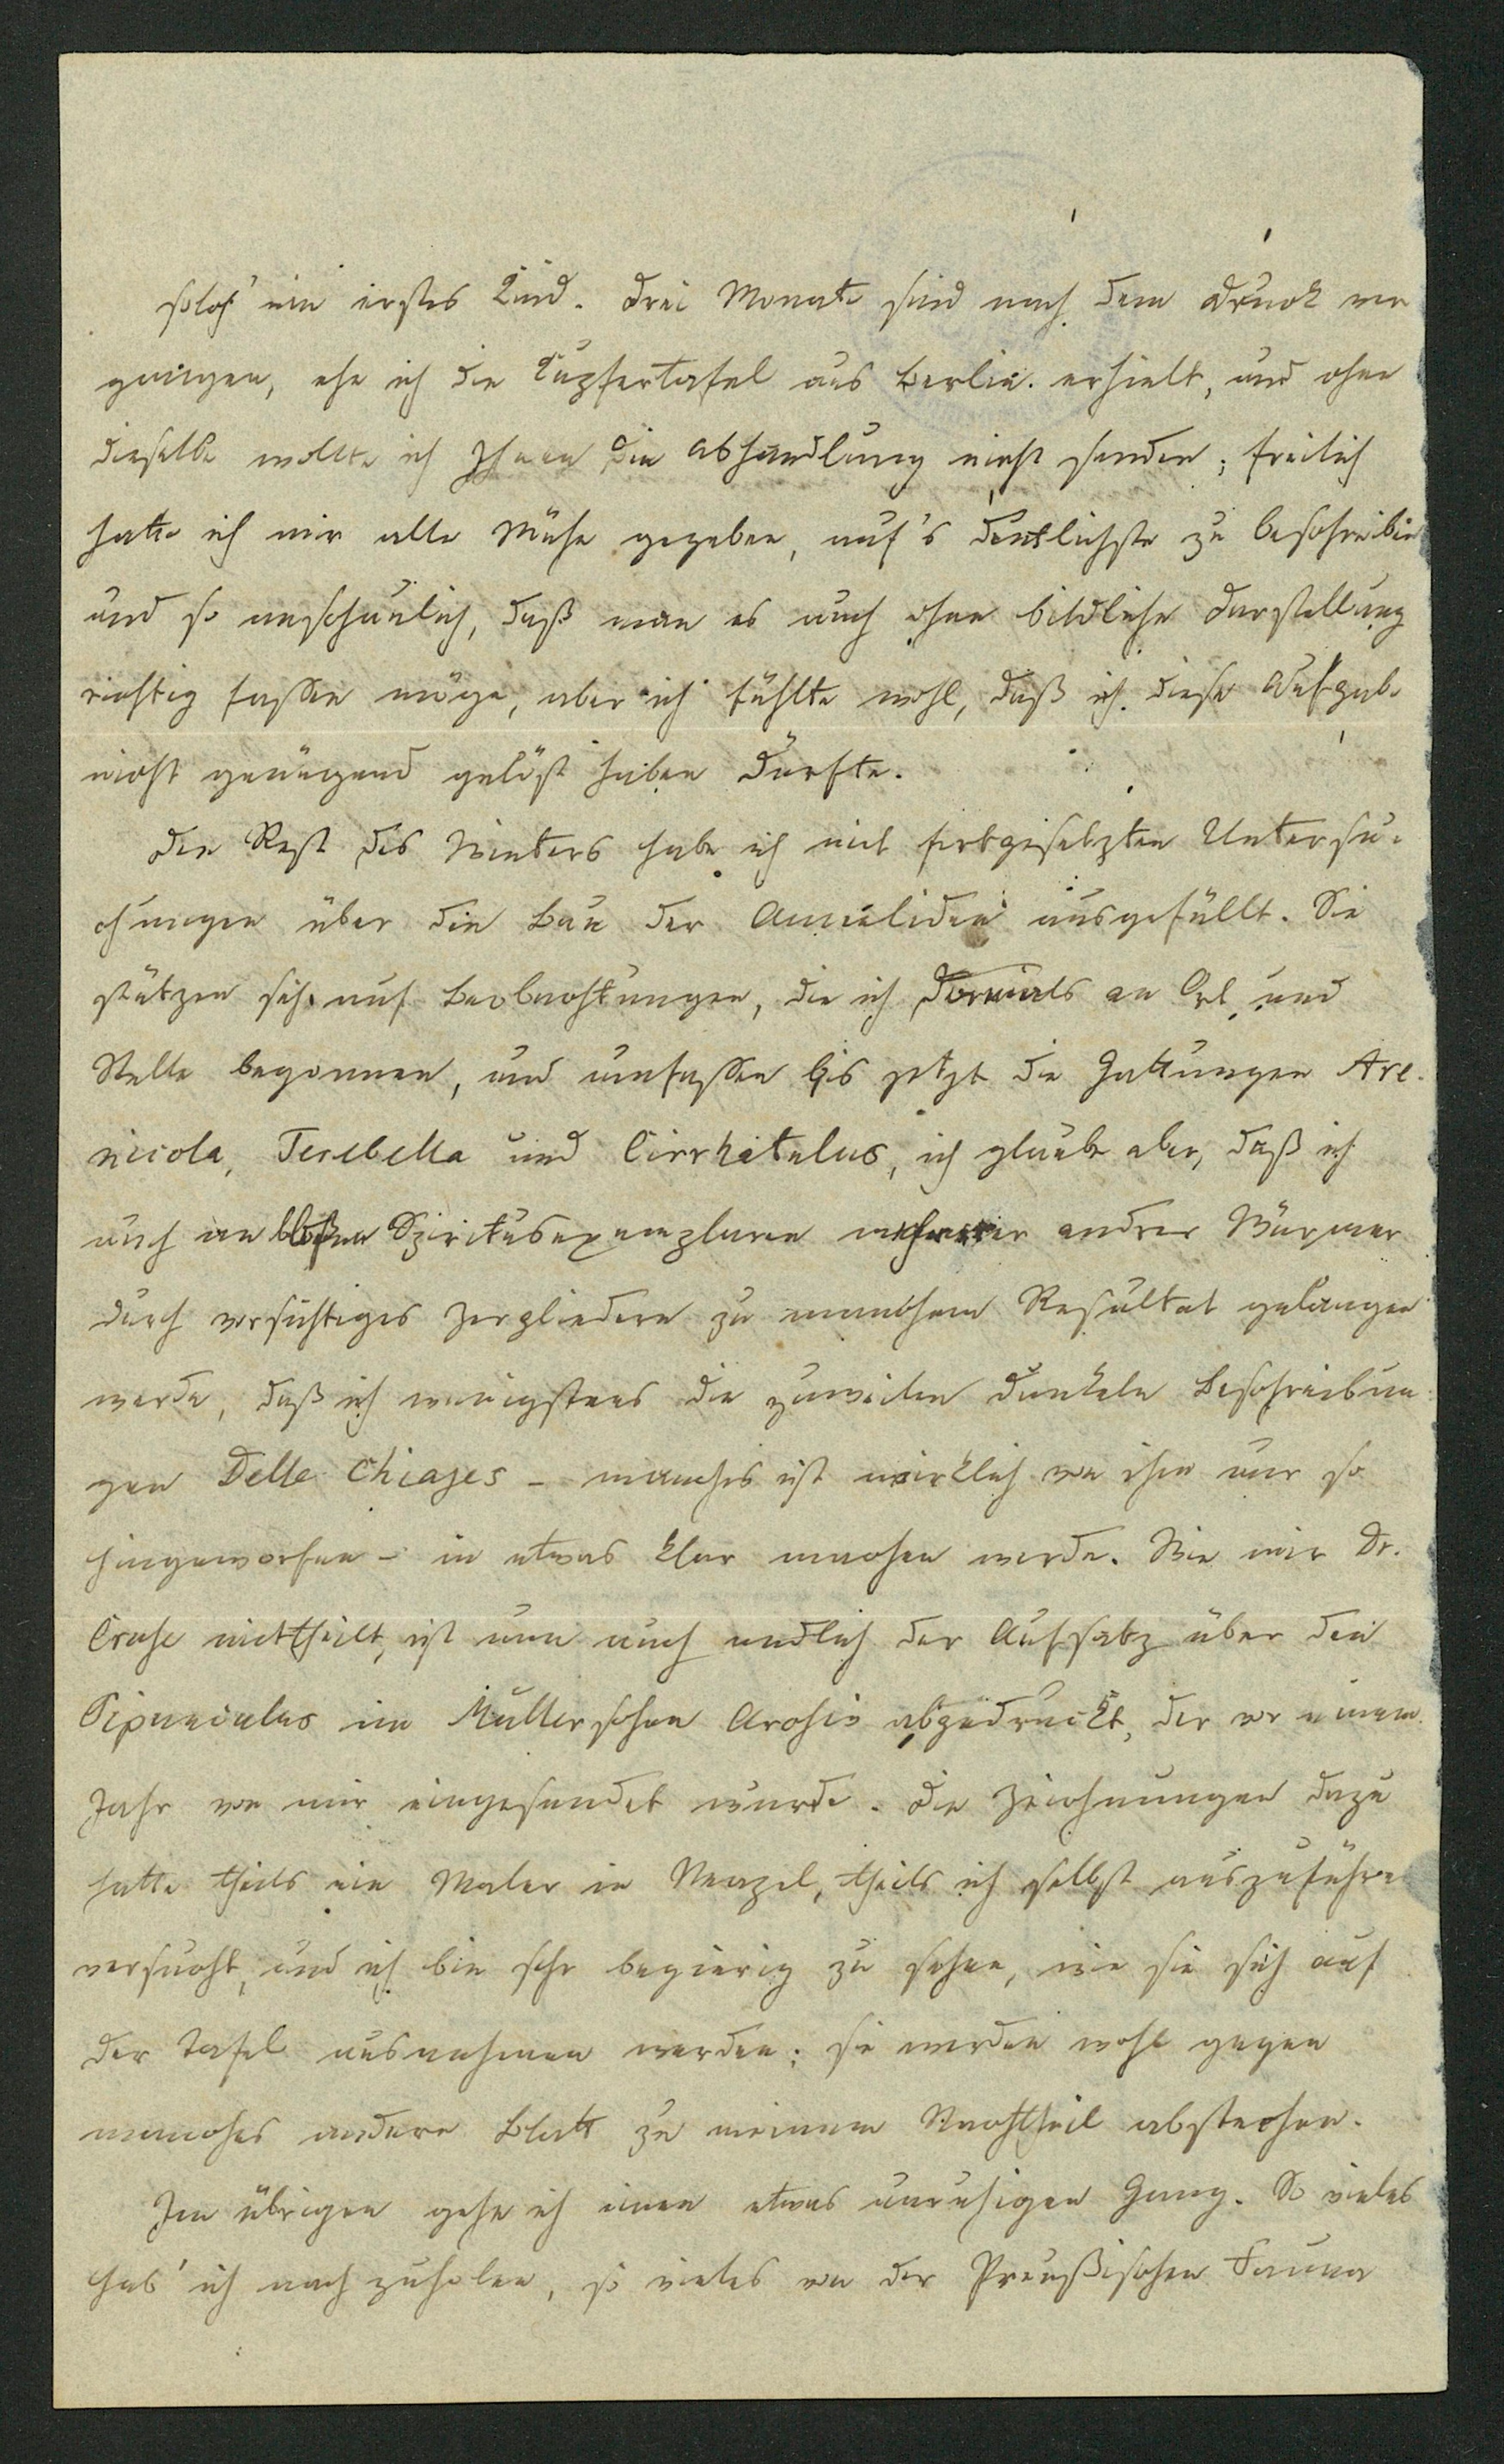 solch' ein erstes Kind. Drei Monate sind nach dem Druck ver
gangen, ehe ich die Kupfertafel aus Berlin erhielt, und ohne
dieselbe wollte ich Ihnen die Abhandlung nicht senden; freilich
hatte ich mir alle Mühe gegeben, auf's deutlichste zu beschreiben
und so anschaulich, daß man es auch ohne bildliche Darstellung
richtig fassen möge, aber ich fühlte wohl, daß ich diese Aufgabe
nicht genügend gelöst haben dürfte.
Den Rest des Winters habe ich mit fortgesetzten Untersu-
chungen über den Bau der Anneliden ausgefüllt. Sie
stützen sich auf Beobachtungen, die ich damals an Ort und
Stelle begonnen, und umfassen bis jetzt die Gattungen Are-
nicola, Terebella und Cirrhatulus, ich glaube aber, daß ich
auch an bloßen Spiritusexemplaren mehrerer andrer Würmer
durch vorsichtiges Zergliedern zu manchem Resultat gelangen
werde, daß ich wenigstens die zuweilen dunkeln Beschreibun
gen Delle Chiajes - manches ist wirklich von ihm nur so
hingeworfen - in etwas klar machen werde. Wie mir Dr.
Cruse mittheilt, ist nun auch endlich der Aufsatz über den
Sipunculus im Müllerschen Archiv abgedruckt, der vor einem
Jahr von mir eingesendet wurde. Die Zeichnungen dazu
hatte theils ein Maler in Neapel, theils ich selbst auszuführen
versucht, und ich bin sehr begierig zu sehen, wie sie sich auf
der Tafel ausnehmen werden; sie werden wohl gegen
manches andere Blatt zu meinem Nachtheil abstechen.
Im übrigen gehe ich einen etwas unruhigen Gang. So vieles
hab' ich nachzuholen, so vieles von der Preußischen Fauna